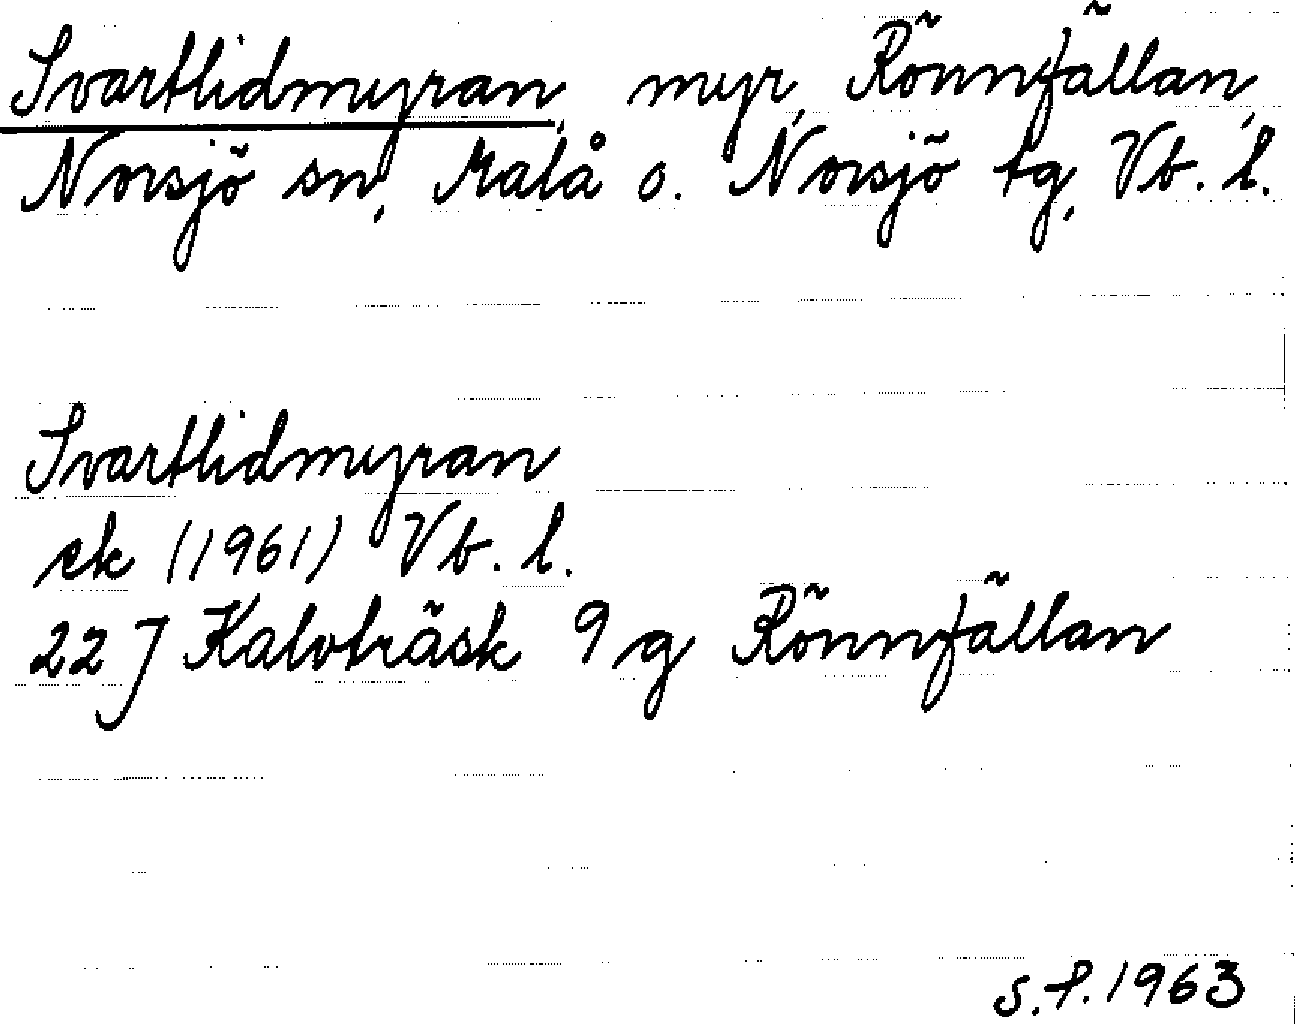 Svartlidmyran, myr, Rönnfällan,
Norsjö sn, Malå o. Norsjö tg, Vb. l.
Svartlidmyran
ek (1961) Vb. l.
22 J Kalvträsk 9 g Rönnfällan
S.P. 1963